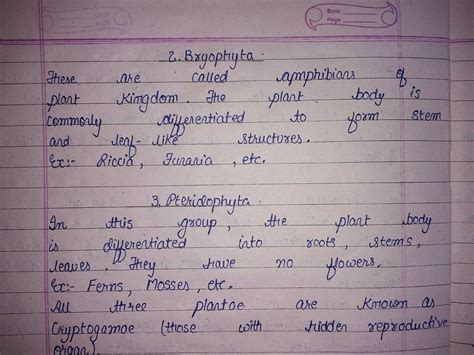 Date
Page
2. Bryophyta.
These are called amphibians of
plant Kingdom. The plant body is
commonly differentiated to form stem
and leaf-like structures.
Ex:- Riccia, Funaria, etc.
3. Pteridophyta.
In this group, the plant body
is differentiated into roots, stems,
leaves. They have no flowers.
Ex:- Ferns, Mosses, etc.
All three plantae are known as
Cryptogamae (those with hidden reproductive
organ)